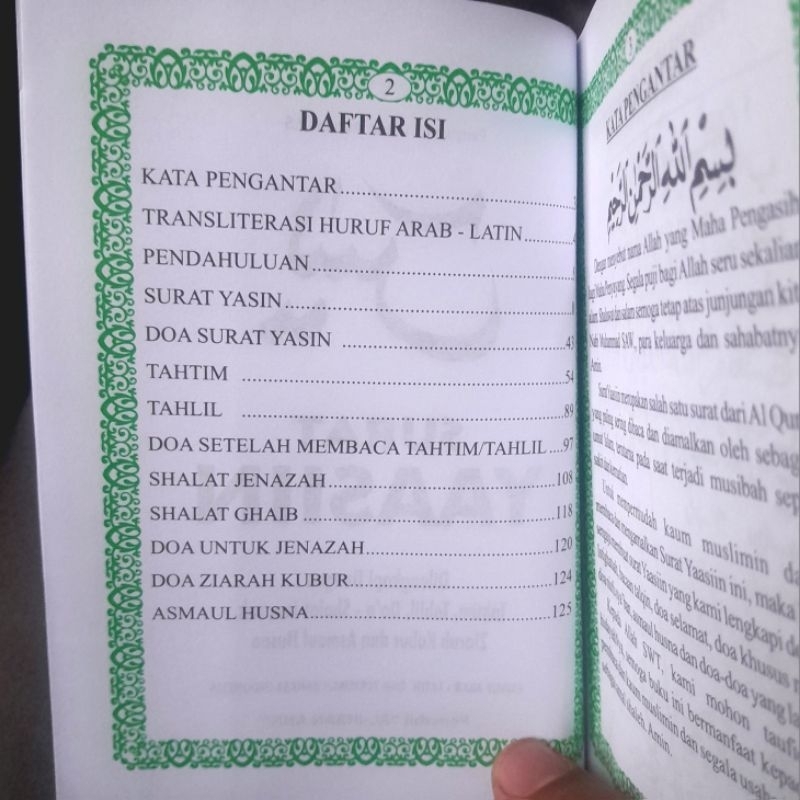 2
DAFTAR ISI
KATA PENGANTAR..........
TRANSLITERASI HURUF ARAB - LATIN..........
PENDAHULUAN..........
SURAT YASIN..........
DOA SURAT YASIN ..........43
TAHTIM ..........54
TAHLIL ..........89
DOA SETELAH MEMBACA TAHTIM/TAHLIL ....97
SHALAT JENAZAH..........108
SHALAT GHAIB ..........118
DOA UNTUK JENAZAH..........120
DOA ZIARAH KUBUR..........124
ASMAUL HUSNA..........125
3
KATA PENGANTAR
بِسْمِ اللهِ الرَّحْمٰنِ الرَّحِيْمِ
Dengan menyebut nama Allah yang Maha Pengasih
lagi Maha Penyayang. Segala puji bagi Allah seru sekalian
alam. Shalawat dan salam semoga tetap atas junjungan
Nabi Muhammad SAW, para keluarga dan
Amin.
Surat Yaasiin merupakan salah satu surat dari Al
yang paling sering dibaca dan diamalkan oleh
umat Islam, terutama pada saat terjadi musibah
sakit dan kematian.
Untuk mempermudah kaum muslimin
membaca dan mengamalkan Surat Yaasiin ini, maka
Surat Yaasiin yang kami lengkapi
doa selamat, doa khusus
asmaul husna dan doa-doa yang
Kepada Allah SWT, kami mohon
semoga buku ini bermanfaat
kaum muslimin dan segala
Amin.